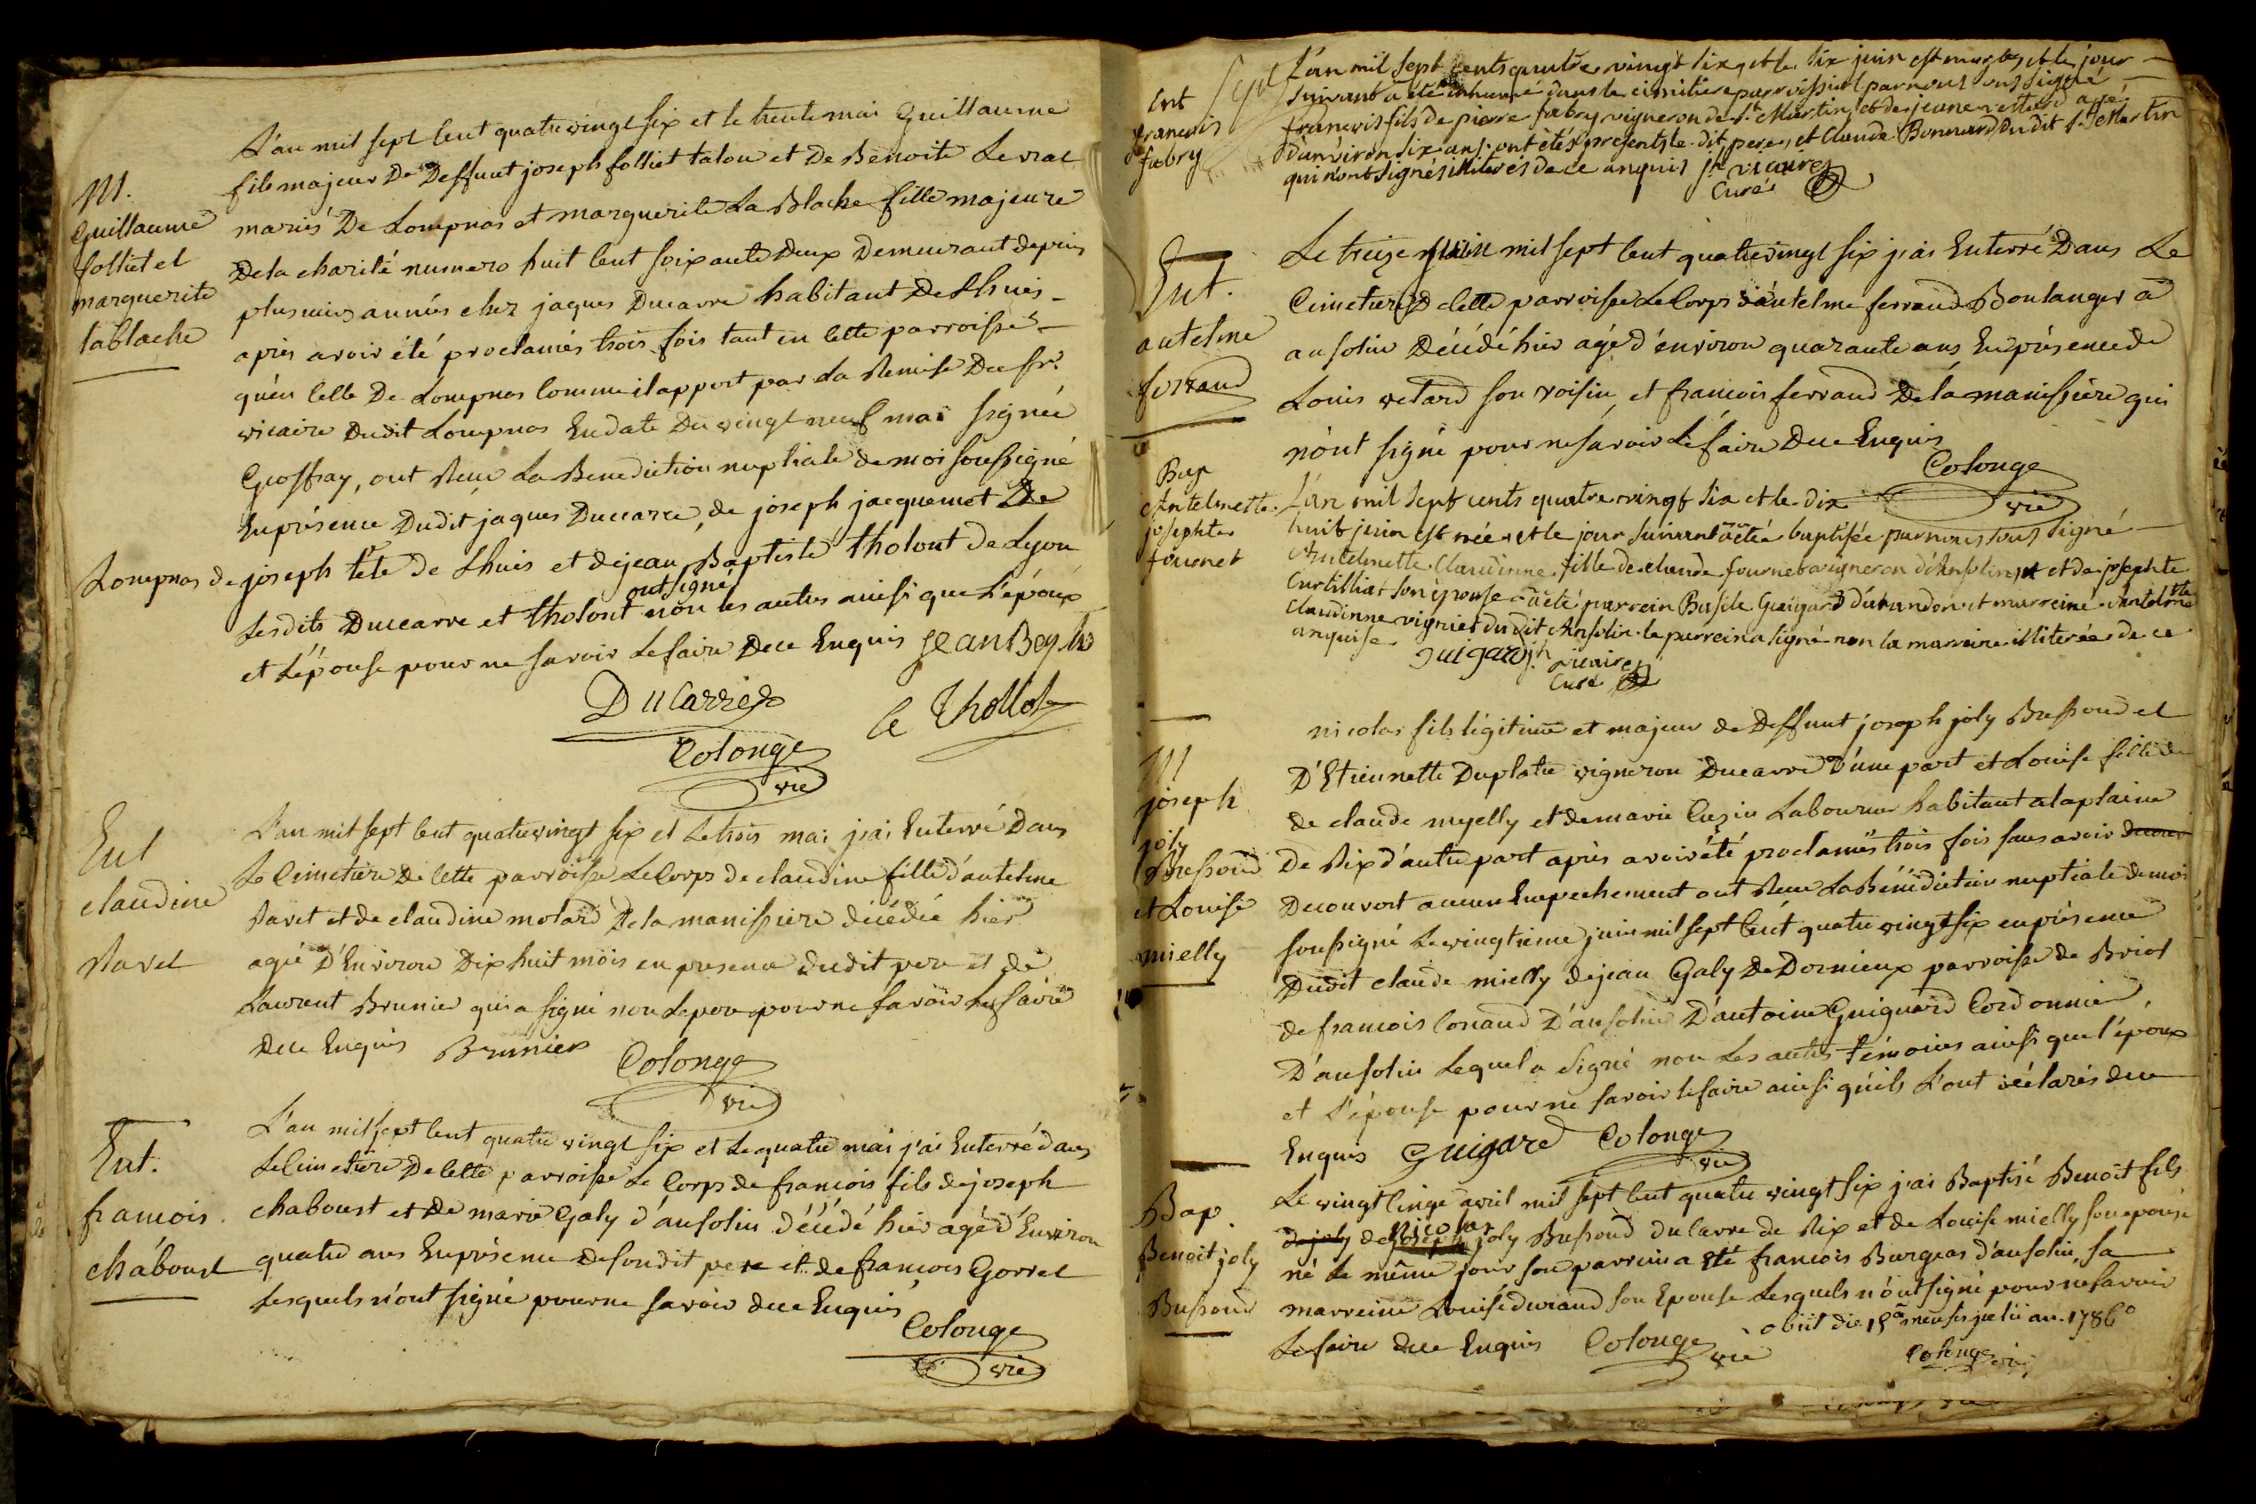 M.
Guillaume
folliet et
marguerite
lablache
L'an mil sept cent quatrevingt six et le trente mai Guillaume
fils majeur De Deffunt joseph folliet talon et De Benoite
mariés De Lompnas et marguerite La Blache fille majeure
De la charité numero huit cent soixante deux Demeurant depuis
plusieurs années chez jaques Ducarre habitant De Lhuis
après avoir été proclamés trois fois tant en cette parroisse
qu'en celle De Lompnas comme il appert par la Remise Du sr.
vicaire Dudit Lompnas En date Du vingt neuf mai signée
Geoffray, ont Reçu La Benediction nuptiale de moi soussigné
En présence Dudit jaques Ducarre, de joseph jacquemet De
Lompnas de joseph tête de Lhuis et de jean Baptiste tholont de Lyon
ont signé
Lesdits Ducarre et tholont non les autres ainsi que L'époux
et L'épouse pour ne savoir Le faire De ce Enquis jean Bap te
Ducarre
le Thollot
Colonge
vic
Ent
claudine
Ravet
L'an mil sept cent quatrevingt six et Le trois mai j'ai Enterré Dans
Le Cimetiere De cette parroisse Le Corps de claudine fille d'antelme
Ravet et de claudine molard De la manissiere décédée hier
agée D'Environ Dix huit mois en presence dudit pere et de
Laurent Brunier qui a signé non Le pere pour ne savoir Le faire
De ce Enquis Brunier
Colonge
vic
Ent.
francois
chaboust
L'an mil sept cent quatre vingt six et Le quatre mai j'ai Enterré dans
Le Cimetiere De cette parroisse Le Corps de francois fils de joseph
chaboust et De marie Galy d'ansolin décédé hier agé d'Environ
quatre ans En présence de sondit pere et de francois Gorret
Lesquels n'ont signé pour ne savoir de ce Enquis
Colonge
vic
Ent
francois
fabry
L'an mil sept cents quatre vingt six, et le six juin est mort et le jour
suivant a été inhumé dans le cimitiere parroissial par nous sous signé
francois fils de pierre fabry vigneron de st. Martin, et de jeanne agé
d'anviron six ans. ont étés présents le dit pere, et Claude Bonnard du dit st. Martin
qui n'ont signés illiterés de ce anquis
vicaire
Curé
Ent.
antelme
ferrand
Le treize juin mil sept cent quatrevingt six j'ai Enterré Dans Le
Cimetiere De cette parroisse Le Corps d'antelme ferrand Boulanger à
ansolin Décédé hier agé d'environ quarante ans En présence de
Louis retard son voisin, et francois ferrand De la manissière qui
n'ont signé pour ne savoir Le faire De ce Enquis
Colonge
vic
Bap
Antelmette
josephte
fournet
L'an mil sept cents quatre vingt six et le dix
huit juin est née et le jour suivant a été baptisée par nous sous signé
Antelmette Claudinne fille de claude fournet vigneron d'Ansolin et de josephte
Curtilliat son épouse a été parrein Basile Guigard d'arandon et marreine Antelmette
Claudinne vignier du dit Ansolin. le parrein a signé non la marraine illiterée de ce
anquise
Guigard
vicaire
Curé
M
joseph
joly
Bressoud
et Louise
mielly
nicolas fils légitime et majeur de Deffunt joseph joly Bressoud et
D'Etiennette Duplatre vigneron Ducarre D'une part et Louise fille de
de claude myelly et de marie Cuzin Laboureur habitant à la plaine
De Rix d'autre part après avoir été proclamés trois fois sans avoir
Decouvert aucun Empechement ont Reçu La Bénédiction nuptiale de moi
soussigné Le vingtieme juin mil sept cent quatre vingt six en présence
Dudit claude mielly de jean Galy De Dornieux parroisse de Briod
de francois Conand D'ansolin D'antoine Guiguard Cordonnier
D'ansolin Lequel a signé non Les autres témoins ainsi que l'époux
et L'épouse pour ne savoir le faire ainsi qu'ils L'ont déclarés de ce
Enquis Guigard Colonge
vic
Bap.
Benoit joly
Bressoud
Le vingt cinq avril mil sept cent quatre vingt six j'ai Baptisé Benoit fils
de joly de nicolas joly Bressoud Ducarre de Rix et de Louise mielly son epouse
né Le même jour son parrein a été francois Burgeas d'ansolin, sa
marreine Louise durand son Epouse Lesquels n'ont signé pour ne savoir
Le faire De ce Enquis Colonge vic
obiit die 15a mensis julii an. 1786°
Colonge vic